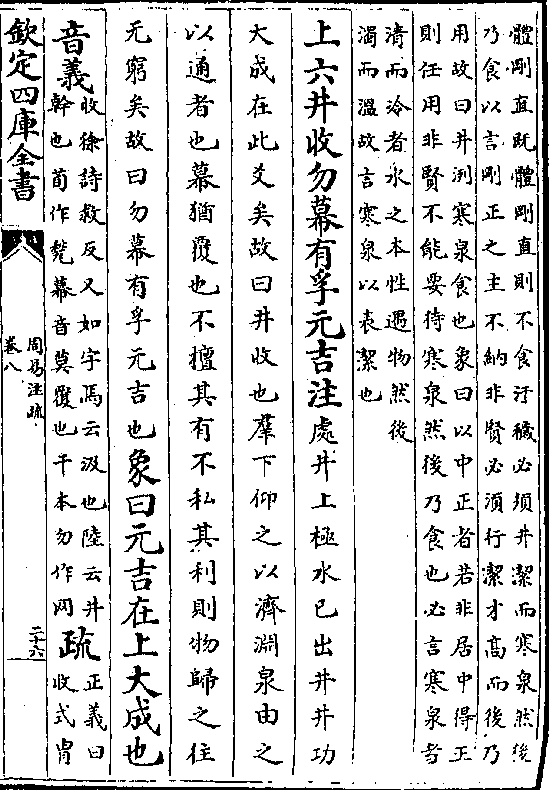 體剛直既體剛直則不食汙穢必須井潔而寒泉然後
乃食以言剛正之主不納非賢必須行潔才髙而後乃
用故曰井洌寒泉食也象曰以中正者若非居中得正
則任用非賢不能要待寒泉然後乃食也必言寒泉者
清而冷者水之本性遇物然後
濁而溫故言寒泉以表潔也
上六井收勿幕有孚元吉注處井上極水已出井井功
大成在此爻矣故曰井收也羣下仰之以濟淵泉由之
以通者也幕猶覆也不擅其有不私其利則物歸之往
无窮矣故曰勿幕有孚元吉也象曰元吉在上大成也
音義收徐詩救反又如字馬云汲也陸云井
幹也荀作甃幕音莫覆也干本勿作网
疏正義曰
收式胄
欽定四庫全書
周易注疏
卷八
二十六